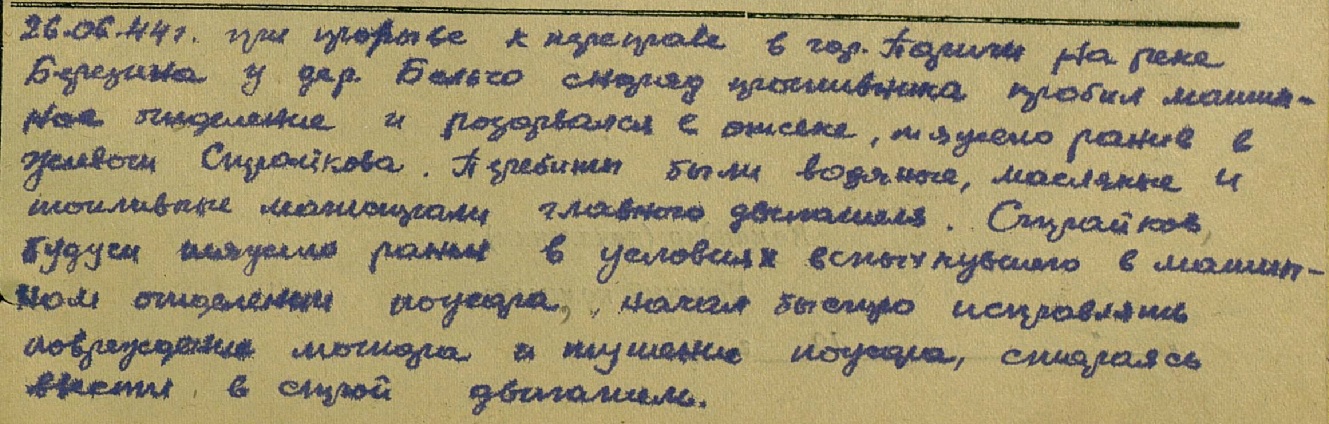 26.06.44г. при прорыве к переправе в гор. Паричи на реке
Березина у дер. Бельчо снаряд противника пробил машин-
ное отделение и разорвался в отсеке, тяжело ранив в
животи Страйкова. Перебиты были водяные, масляные и
топливные магистрали главного двигателя. Страйков,
будучи тяжело ранен в условиях вспыхнувшего в машин-
ном отделении пожара, начал быстро исправлять
повреждение мотора и тушение пожара, стараясь
ввести в строй двигатель.